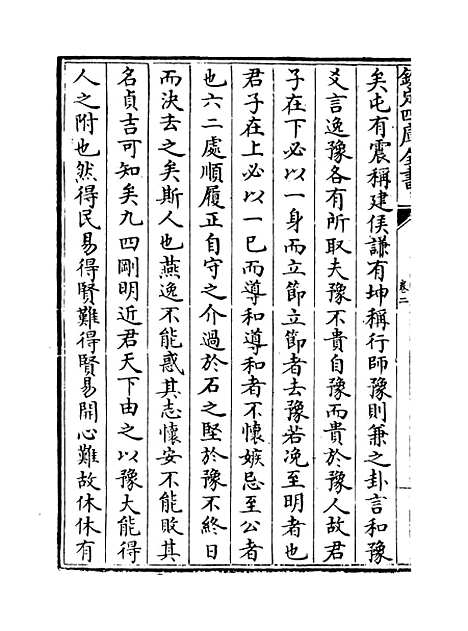 欽定四庫全書
卷二
矣屯有震稱建侯謙有坤稱行師豫則兼之卦言和豫
爻言逸豫各有所取夫豫不貴自豫而貴於豫人故君
子在下必以一身而立節立節者去豫若凂至明者也
君子在上必以一已而導和導和者不懷嫉忌至公者
也六二處順履正自守之介過於石之堅於豫不終日
而決去之矣斯人也燕逸不能惑其志懷安不能敗其
名貞吉可知矣九四剛明近君天下由之以豫大能得
人之附也然得民易得賢難得賢易開心難故休休有